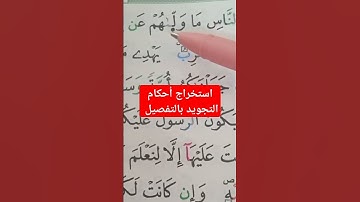 النَّاسِ مَا وَلَّىٰهُمْ عَن
يَهْدِى
أُمَّةً
استخراج أحكام
التجويد بالتفصيل
يَكُونَ ٱلرَّسُولُ
عَلَيْهَآ إِلَّا لِنَعْلَمَ
وَإِن كَانَتْ